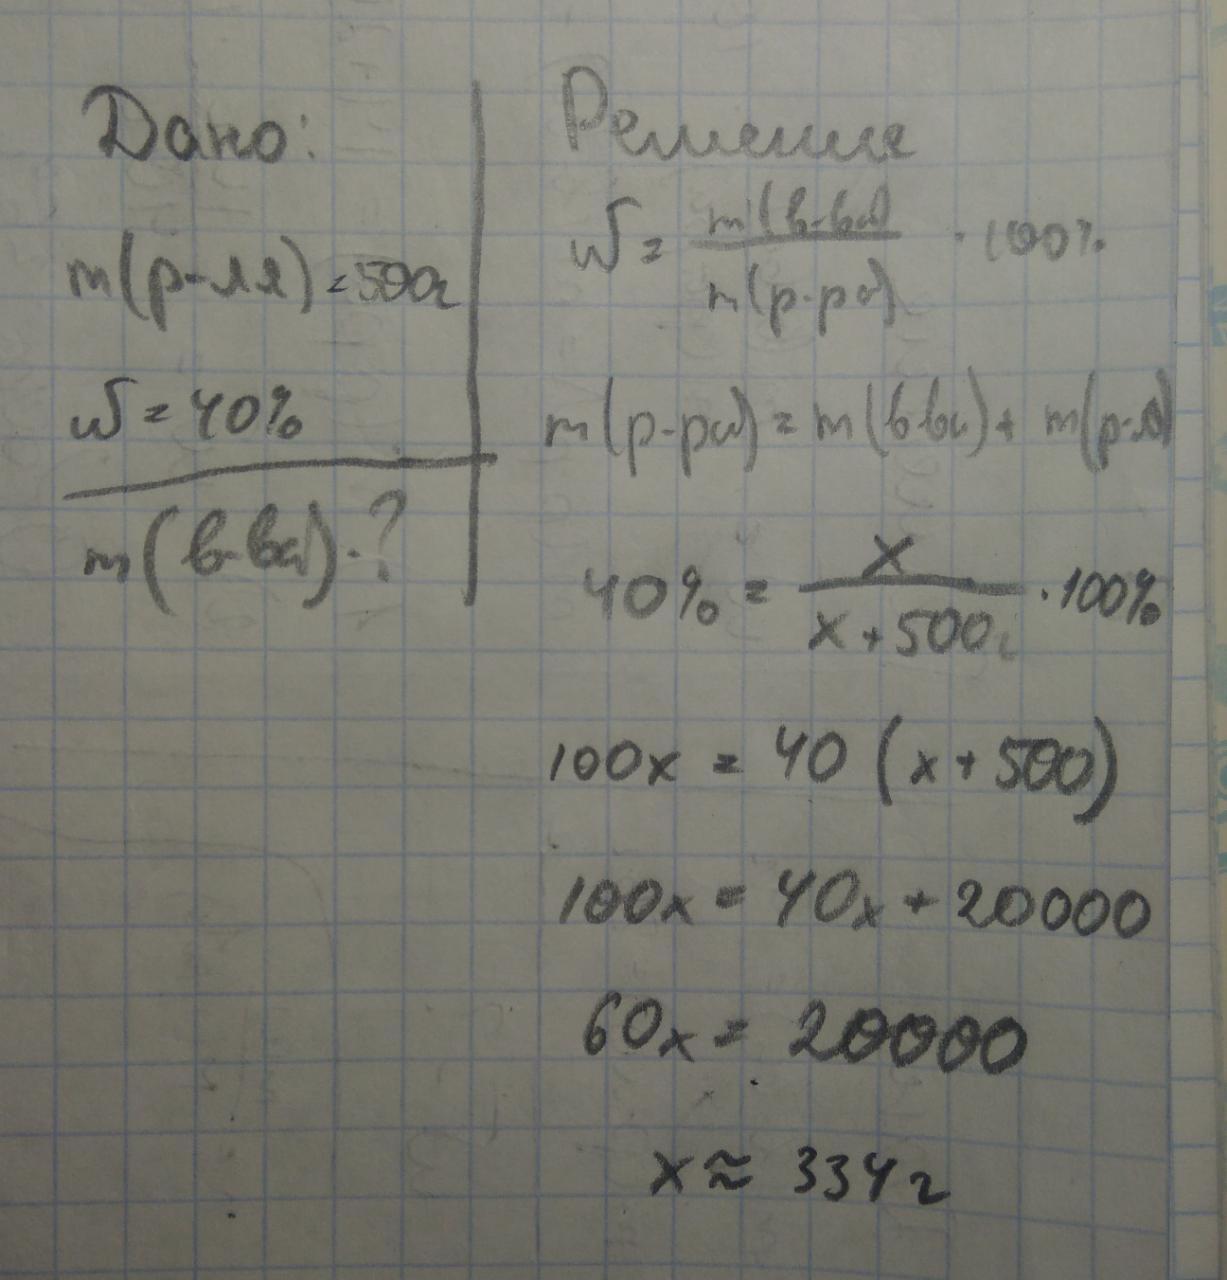 Дано:
m(р-ля) = 500г
ω = 40%
m(в-ва) - ?
Решение
ω = m(в-ва) / m(р-ра) · 100%
m(р-ра) = m(в-ва) + m(р-ля)
40% = x / x + 500г · 100%
100x = 40 (x + 500)
100x = 40x + 20000
60x = 20000
x ≈ 334 г